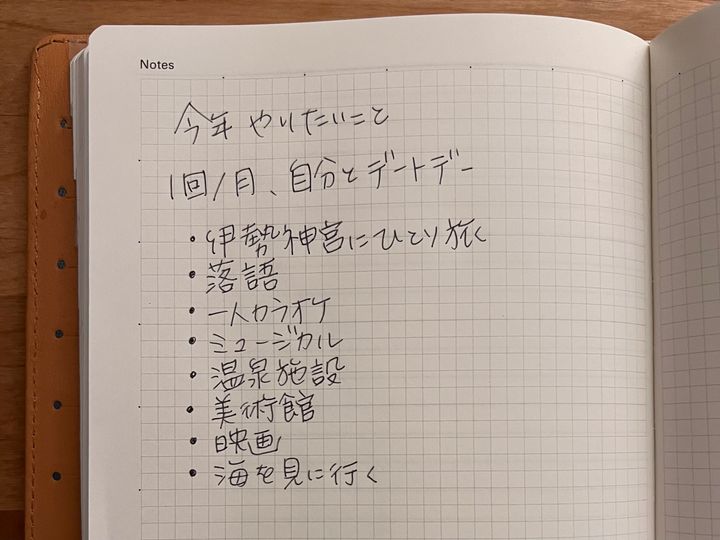 Notes
今年やりたいこと
1回/月、自分とデートデー
・伊勢神宮にひとり旅
・落語
・一人カラオケ
・ミュージカル
・温泉施設
・美術館
・映画
・海を見に行く